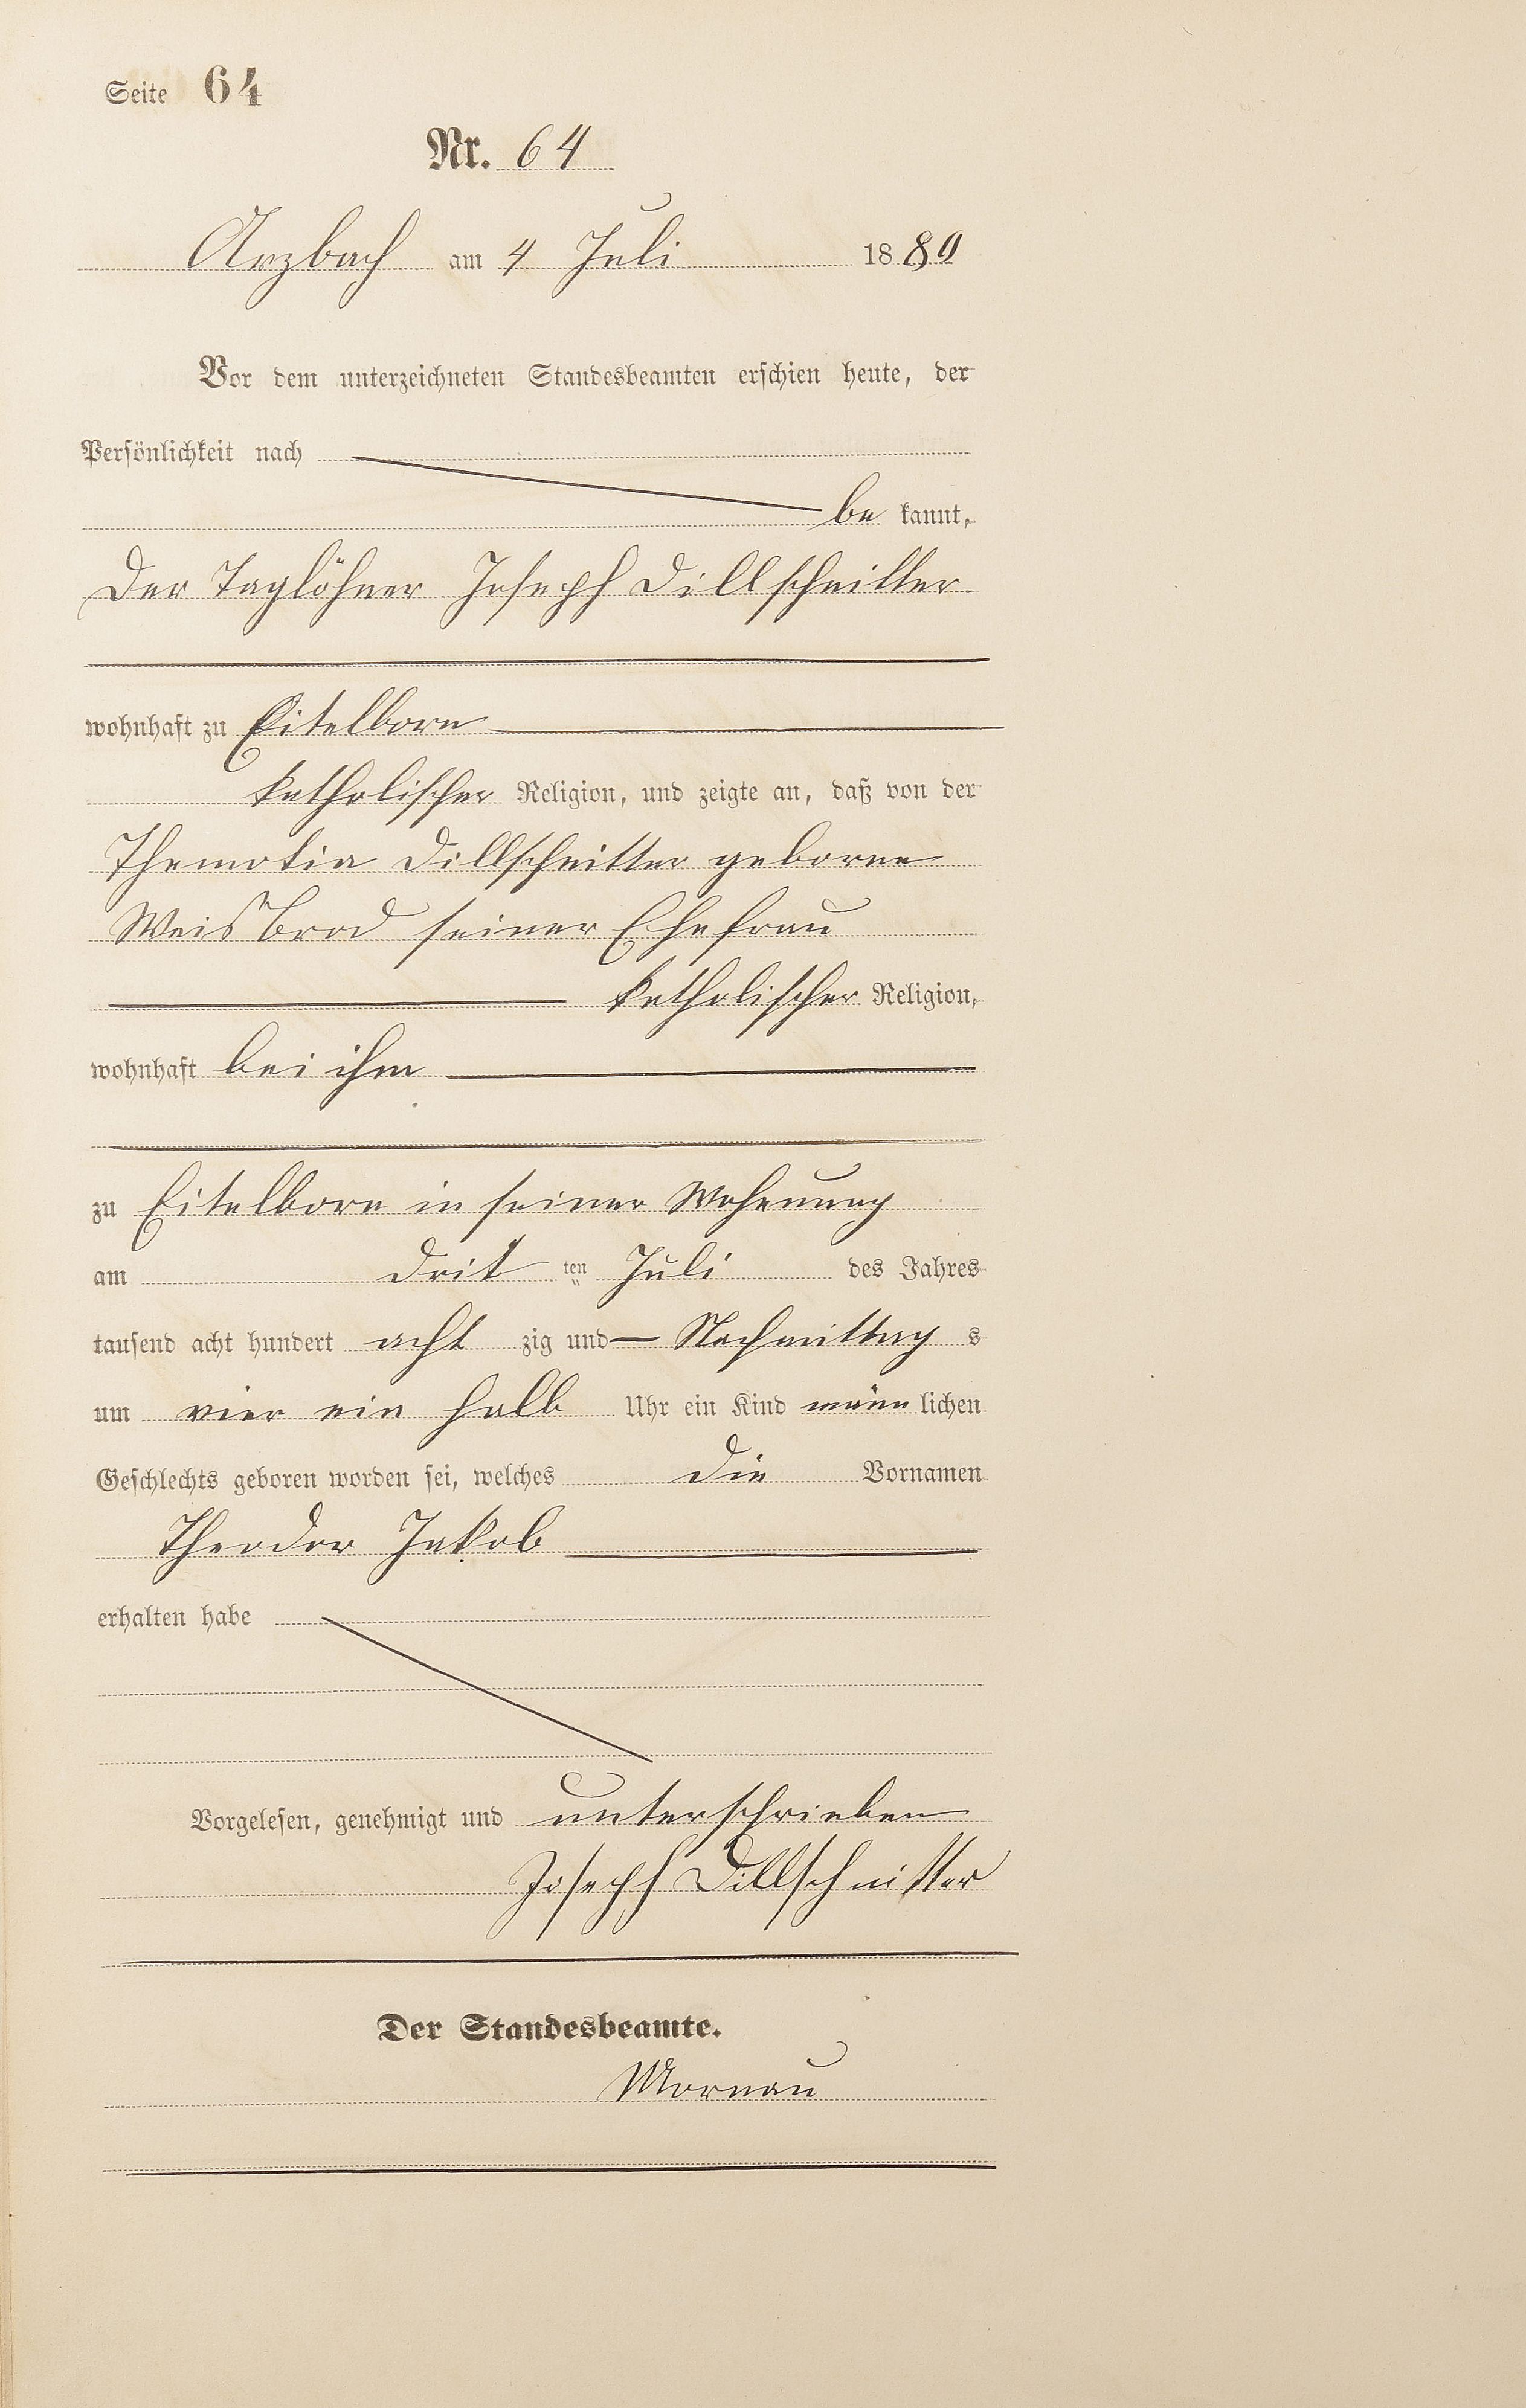 Seite 64
Nr. 64
Arzbach am 4 Juli 1880
Vor dem unterzeichneten Standesbeamten erschien heute, der
Persönlichkeit nach
be kannt,
der Taglöhner Joseph Dillschnitter
wohnhaft zu Eitelborn
katholischer Religion, und zeigte an, daß von der
Themotia Dillschnitter geborne
Weisbrod seiner Ehefrau
katholischer Religion,
wohnhaft bei ihm
zu Eitelborn in seiner Wohnung
am drit ten Juli des Jahres
tausend acht hundert acht zig und Nachmittag s
um vier ein halb Uhr ein Kind männ lichen
Geschlechts geboren worden sei, welches die Vornamen
Theodor Jakob
erhalten habe
Vorgelesen, genehmigt und unterschrieben
Joseph Dillschnitter
Der Standesbeamte.
Mornau